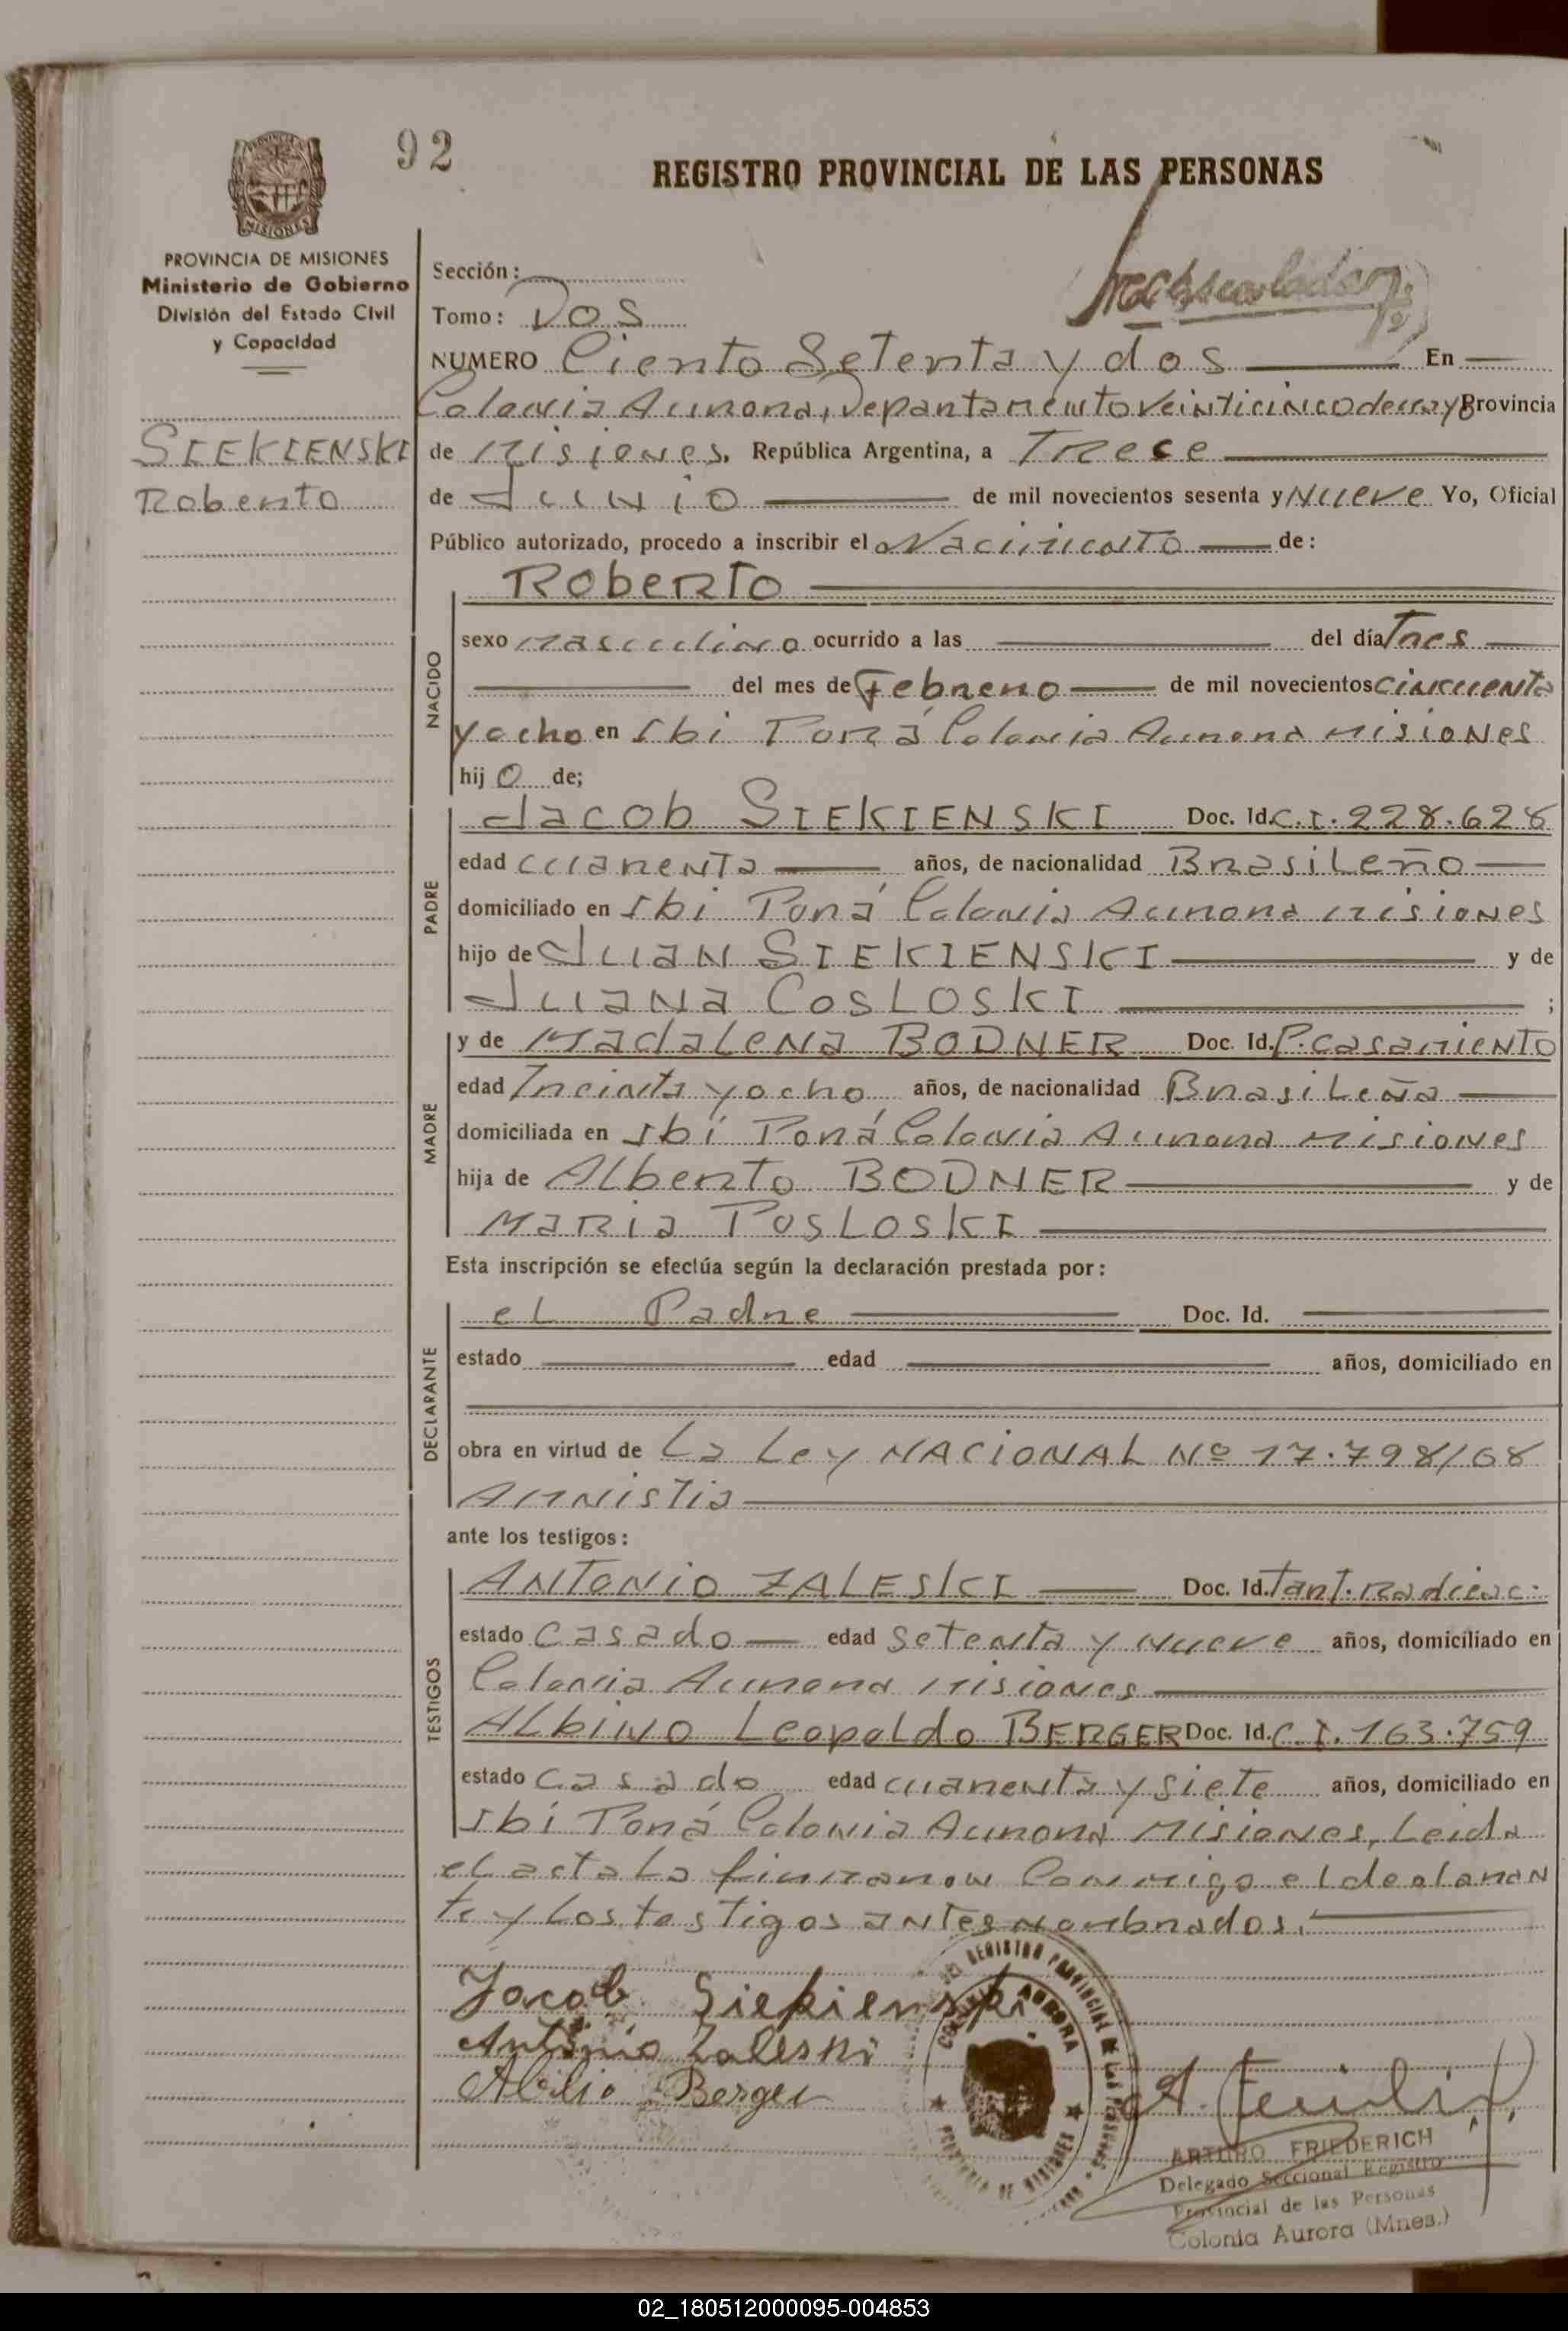 92
REGISTRO PROVINCIAL DE LAS PERSONAS
MISIONES
PROVINCIA DE MISIONES
Ministerio de Gobierno
División del Estado Civil
y Capacidad
SIEKIENSKI
Roberto
Sección:
Tomo: Dos
NUMERO Ciento Setenta y dos En
Colonia Aurora, Departamento Veinticinco de mayo Provincia
de Misiones, República Argentina, a Trece
de Junio de mil novecientos sesenta y Nueve Yo, Oficial
Público autorizado, procedo a inscribir el Nacimiento de:
Roberto
NACIDO
sexo masculino ocurrido a las del día Tres
del mes de Febrero de mil novecientos cincuenta
y ocho en Ibi Porá Colonia Aurora Misiones
hij o de;
PADRE
Jacob SIEKIENSKI Doc. Id. C.I. 228.628
edad cuarenta años, de nacionalidad Brasileño
domiciliado en Ibi Porá Colonia Aurora Misiones
hijo de Juan SIEKIENSKI y de
Juana COSLOSKI ;
MADRE
y de Madalena BODNER Doc. Id. P. casamiento
edad Treinta y ocho años, de nacionalidad Brasileña
domiciliada en Ibi Porá Colonia Aurora Misiones
hija de Alberto BODNER y de
Maria POSLOSKI
Esta inscripción se efectúa según la declaración prestada por:
DECLARANTE
el Padre Doc. Id.
estado edad años, domiciliado en
obra en virtud de La Ley NACIONAL Nº 17.798/68
Amnistia
ante los testigos:
TESTIGOS
ANTONIO ZALESKI Doc. Id. Tarj. Radicac.
estado Casado edad Setenta y nueve años, domiciliado en
Colonia Aurora Misiones
Albino Leopoldo BERGER Doc. Id. C.I. 163.759
estado Casado edad cuarenta y siete años, domiciliado en
Ibi Porá Colonia Aurora Misiones, Leida
el acta la firmaron conmigo el declaran
te y los testigos antes nombrados.
Jacob Siekienski
Antonio Zaleski
Berger
REGISTRO PROVINCIAL DE LAS PERSONAS
COLONIA AURORA
PROVINCIA DE MISIONES
ARTURO FRIEDERICH
Delegado Seccional Registro
Provincial de las Personas
Colonia Aurora (Mnes.)
02_180512000095-004853